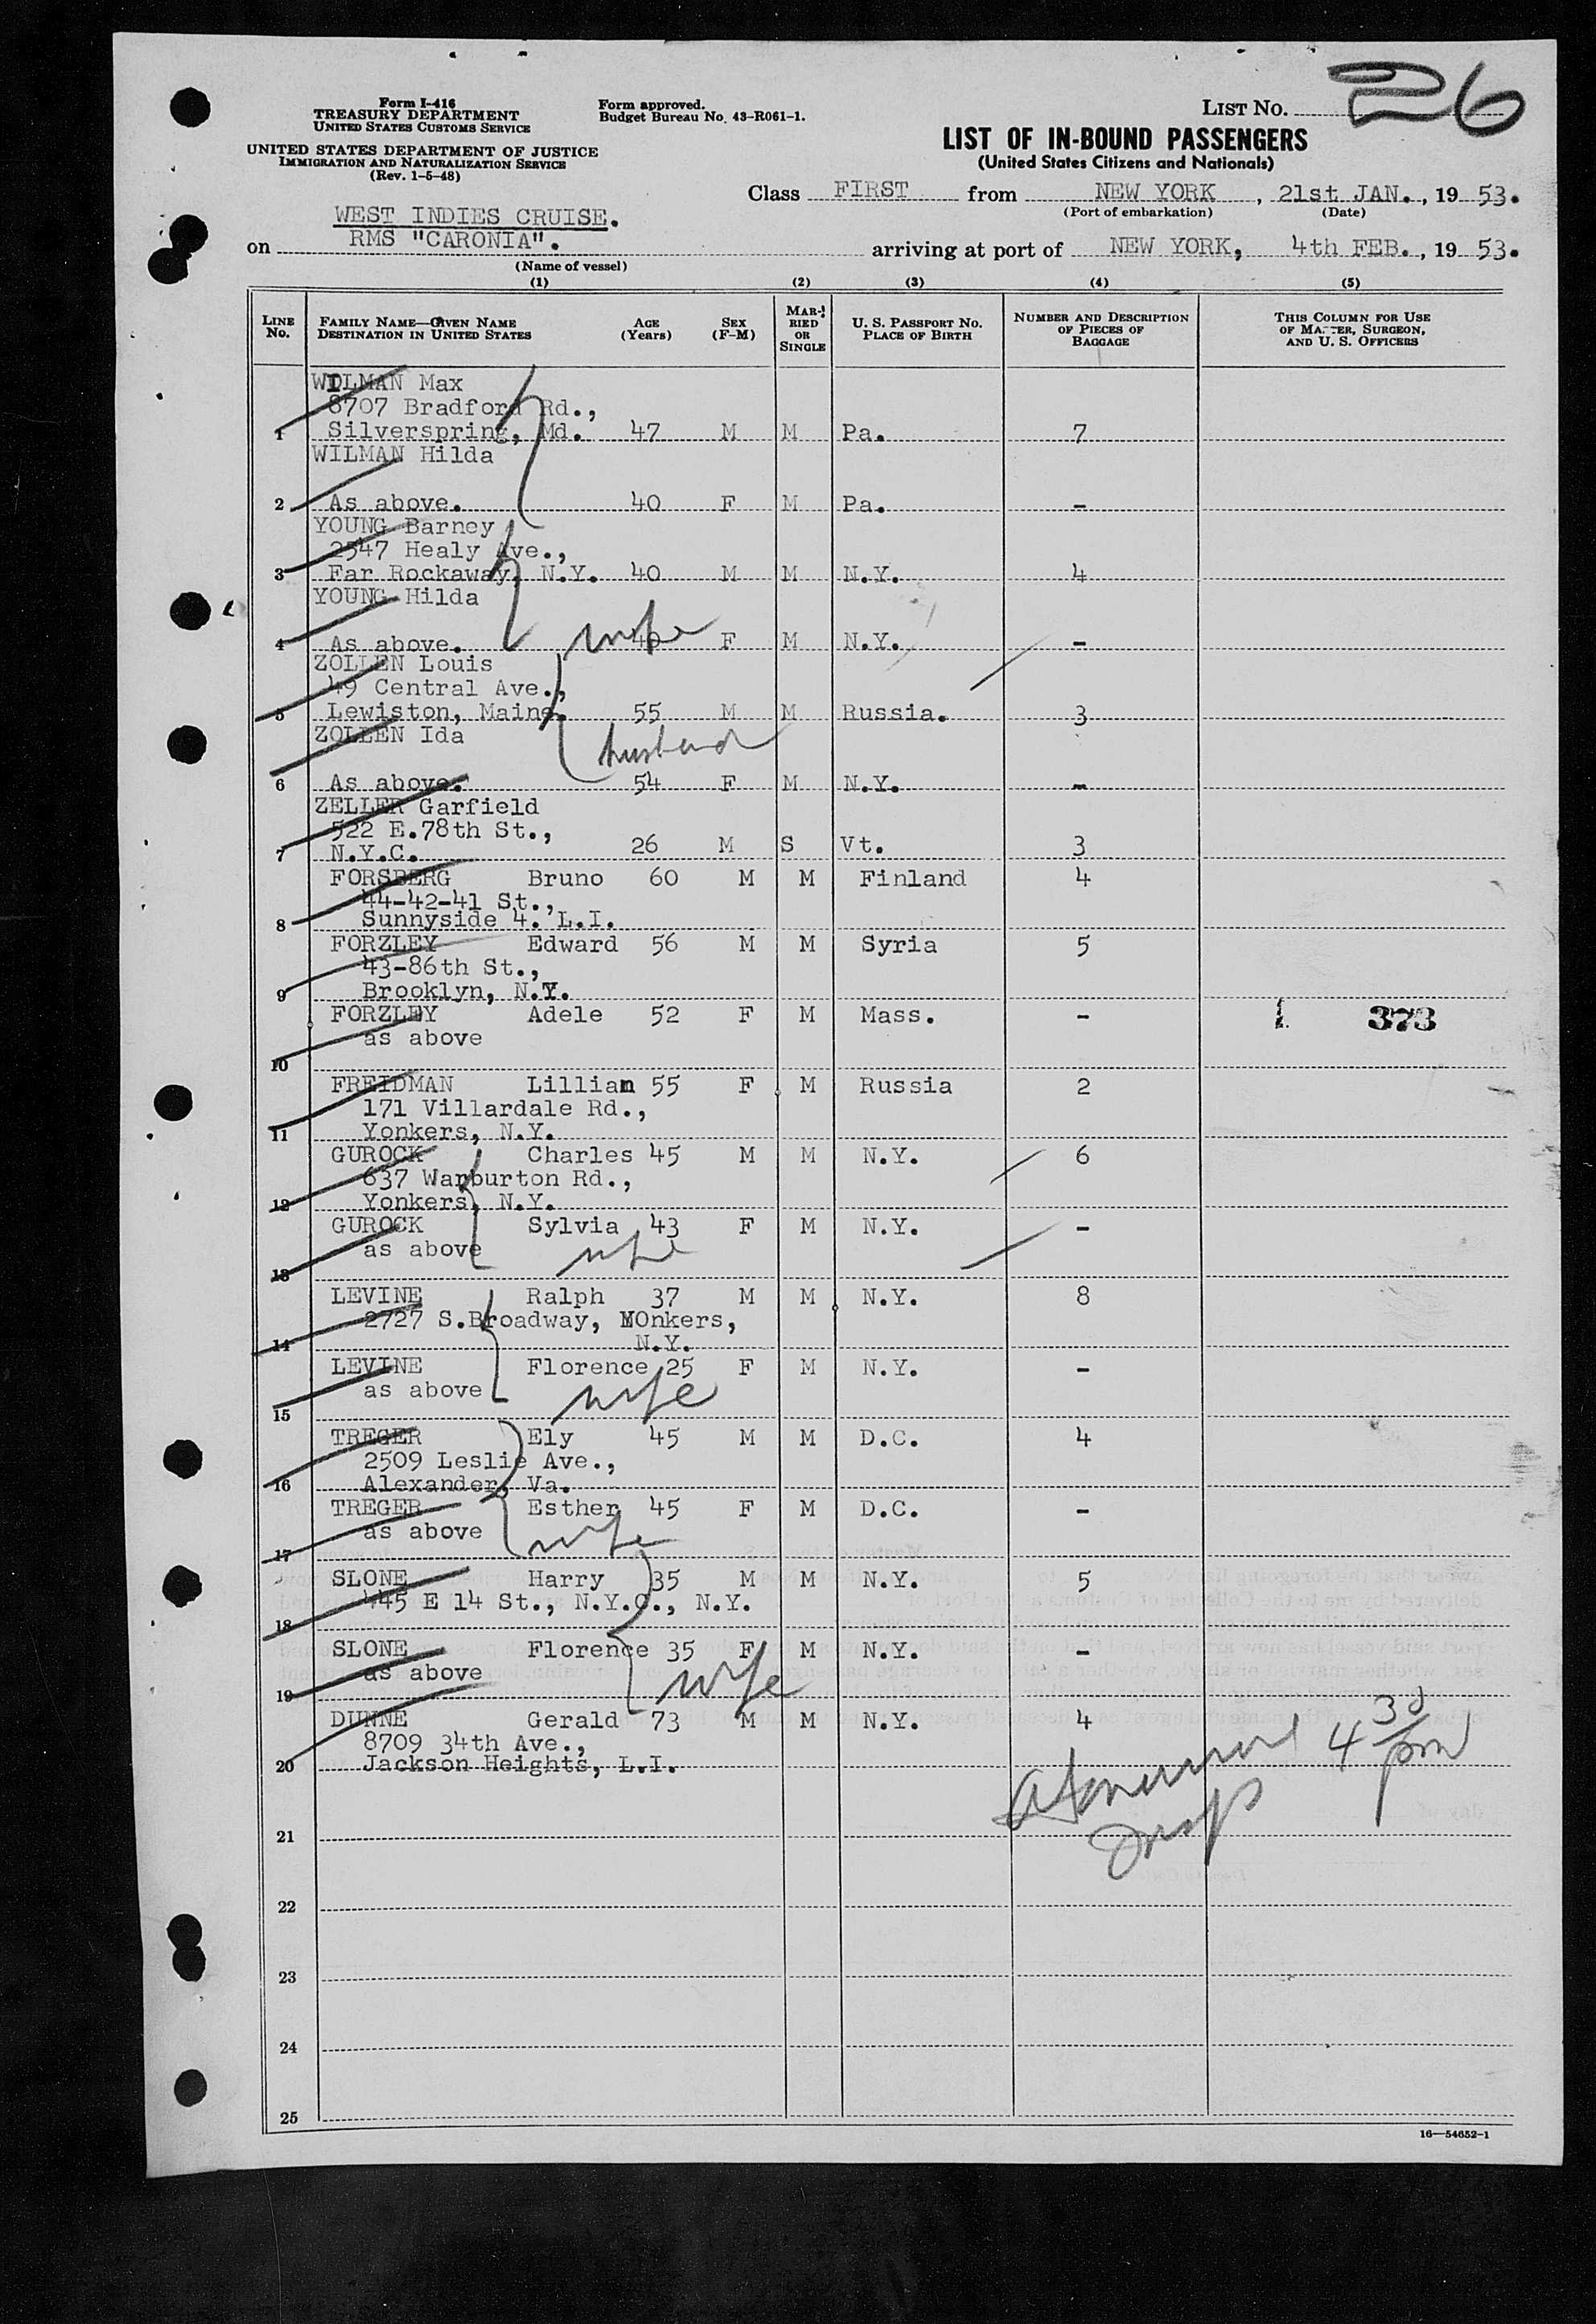 Form I-416
TREASURY DEPARTMENT
UNITED STATES CUSTOMS SERVICE
UNITED STATES DEPARTMENT OF JUSTICE
IMMIGRATION AND NATURALIZATION SERVICE
(Rev. 1-5-48)
Form approved.
Budget Bureau No. 43-R061-1.
LIST No. 26
LIST OF IN-BOUND PASSENGERS
(United States Citizens and Nationals)
Class FIRST from NEW YORK, 21st JAN., 1953.
(Port of embarkation) (Date)
WEST INDIES CRUISE.
on RMS "CARONIA". arriving at port of NEW YORK, 4th FEB., 1953.
(Name of vessel)
(1) (2) (3) (4) (5)
LINE No. FAMILY NAME—GIVEN NAME DESTINATION IN UNITED STATES AGE (Years) SEX (F-M) MARRIED OR SINGLE U. S. PASSPORT No. PLACE OF BIRTH NUMBER AND DESCRIPTION OF PIECES OF BAGGAGE THIS COLUMN FOR USE OF MASTER, SURGEON, AND U. S. OFFICERS
WILMAN Max
8707 Bradford Rd.,
1 Silverspring, Md. 47 M M Pa. 7
WILMAN Hilda
2 As above. 40 F M Pa. -
YOUNG Barney
2547 Healy Ave.,
3 Far Rockaway, N.Y. 40 M M N.Y. 4
YOUNG Hilda
4 As above. wife 40 F M N.Y. -
ZOLLEN Louis
49 Central Ave.,
5 Lewiston, Maine. 55 M M Russia. 3
ZOLLEN Ida
husband
6 As above. 54 F M N.Y. -
ZELLER Garfield
522 E.78th St.,
7 N.Y.C. 26 M S Vt. 3
FORSBERG Bruno 60 M M Finland 4
44-42-41 St.,
8 Sunnyside 4. L.I.
FORZLEY Edward 56 M M Syria 5
43-86th St.,
9 Brooklyn, N.Y.
FORZLEY Adele 52 F M Mass. - 1 373
as above
10
FREIDMAN Lillian 55 F M Russia 2
171 Villardale Rd.,
11 Yonkers, N.Y.
GUROCK Charles 45 M M N.Y. 6
637 Warburton Rd.,
12 Yonkers, N.Y.
GUROCK Sylvia 43 F M N.Y. -
as above wife
13
LEVINE Ralph 37 M M N.Y. 8
2727 S.Broadway, YOnkers,
14 N.Y.
LEVINE Florence 25 F M N.Y. -
as above wife
15
TREGER Ely 45 M M D.C. 4
2509 Leslie Ave.,
16 Alexander, Va.
TREGER Esther 45 F M D.C. -
as above wife
17
SLONE Harry 35 M M N.Y. 5
445 E 14 St., N.Y.C., N.Y.
18
SLONE Florence 35 F M N.Y. -
as above wife
19
DUNNE Gerald 73 M M N.Y. 4
8709 34th Ave.,
20 Jackson Heights, L.I.
4 30 pm
Insp
21
22
23
24
25
16—54652-1